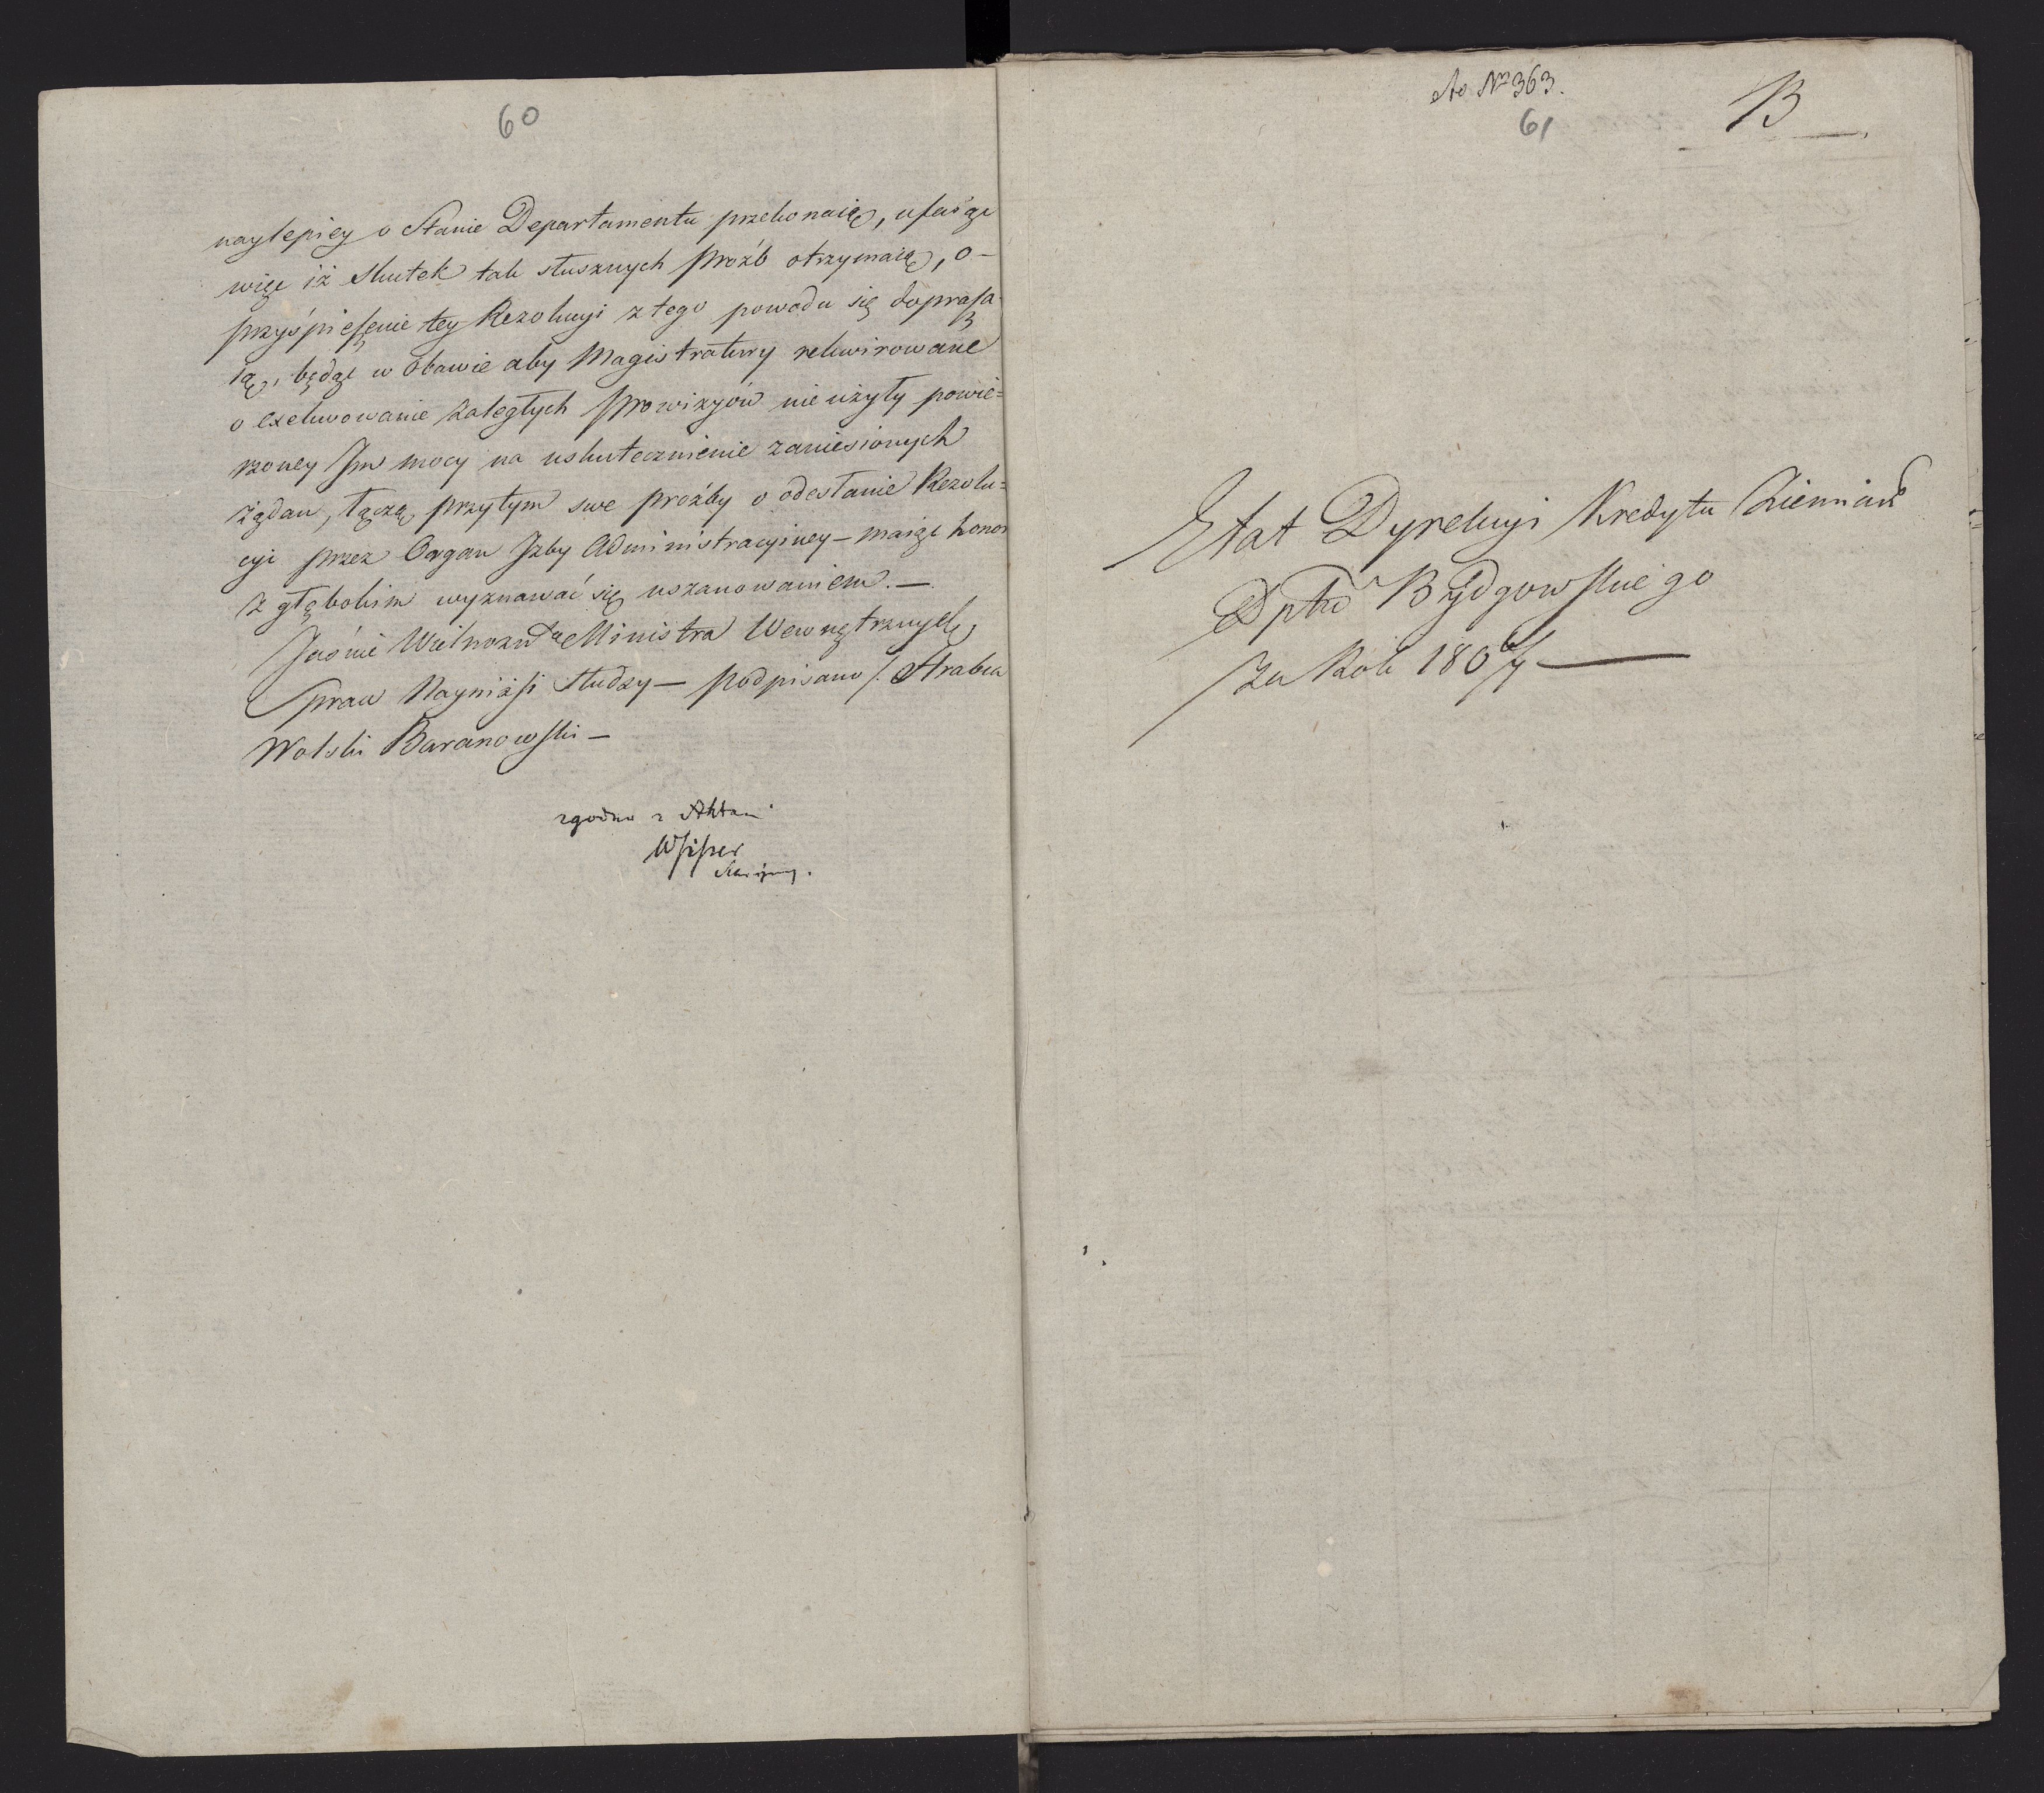 60
naylepiey o Stanie Departamentu przekonaią, ufaiąc
więc iż Skutek tak słusznych proźb otrzymaią, o-
przyśpieszenie tey Rezolucyi z tego powodu się dopraſza
ią, będąc w obawie aby Magistratury rekwirowane
o exekwowanie zaległych prowizyów nie użyły powie=
rzoney Im mocy na uskutecznienie zaniesionych
żądan, łączą przytym swe proźby o odesłanie Rezolu=
cyi przez Organ Izby Administracyiney – maiąc honor
z głębokim wyznawać się uszanowaniem. –
Jaśnie Wielmożn Ministra Wewnętrznych
Spraw Nayniżſi Słudzy – podpisano /.
Wolski Baranowski –
zgodno z Aktami
Ad No 363.
61
B
Etat Dyrekcyi Kredytu Ziemsk
Dptu Bydgowskiego
za Rok 1806/7